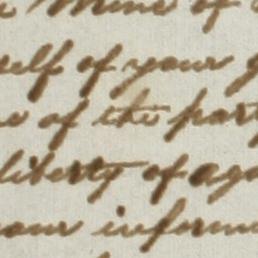 Mine of
self of your
of the part
liberty of aga
our inform